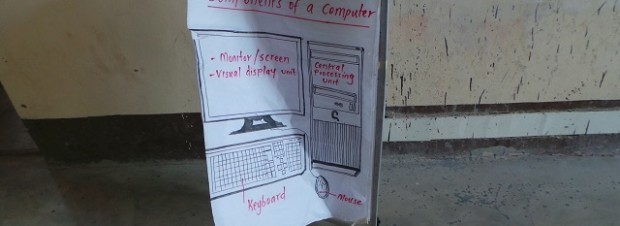 Components of a Computer
- Monitor/screen
- Visual display unit
Central
Processing
unit
Keyboard
Mouse